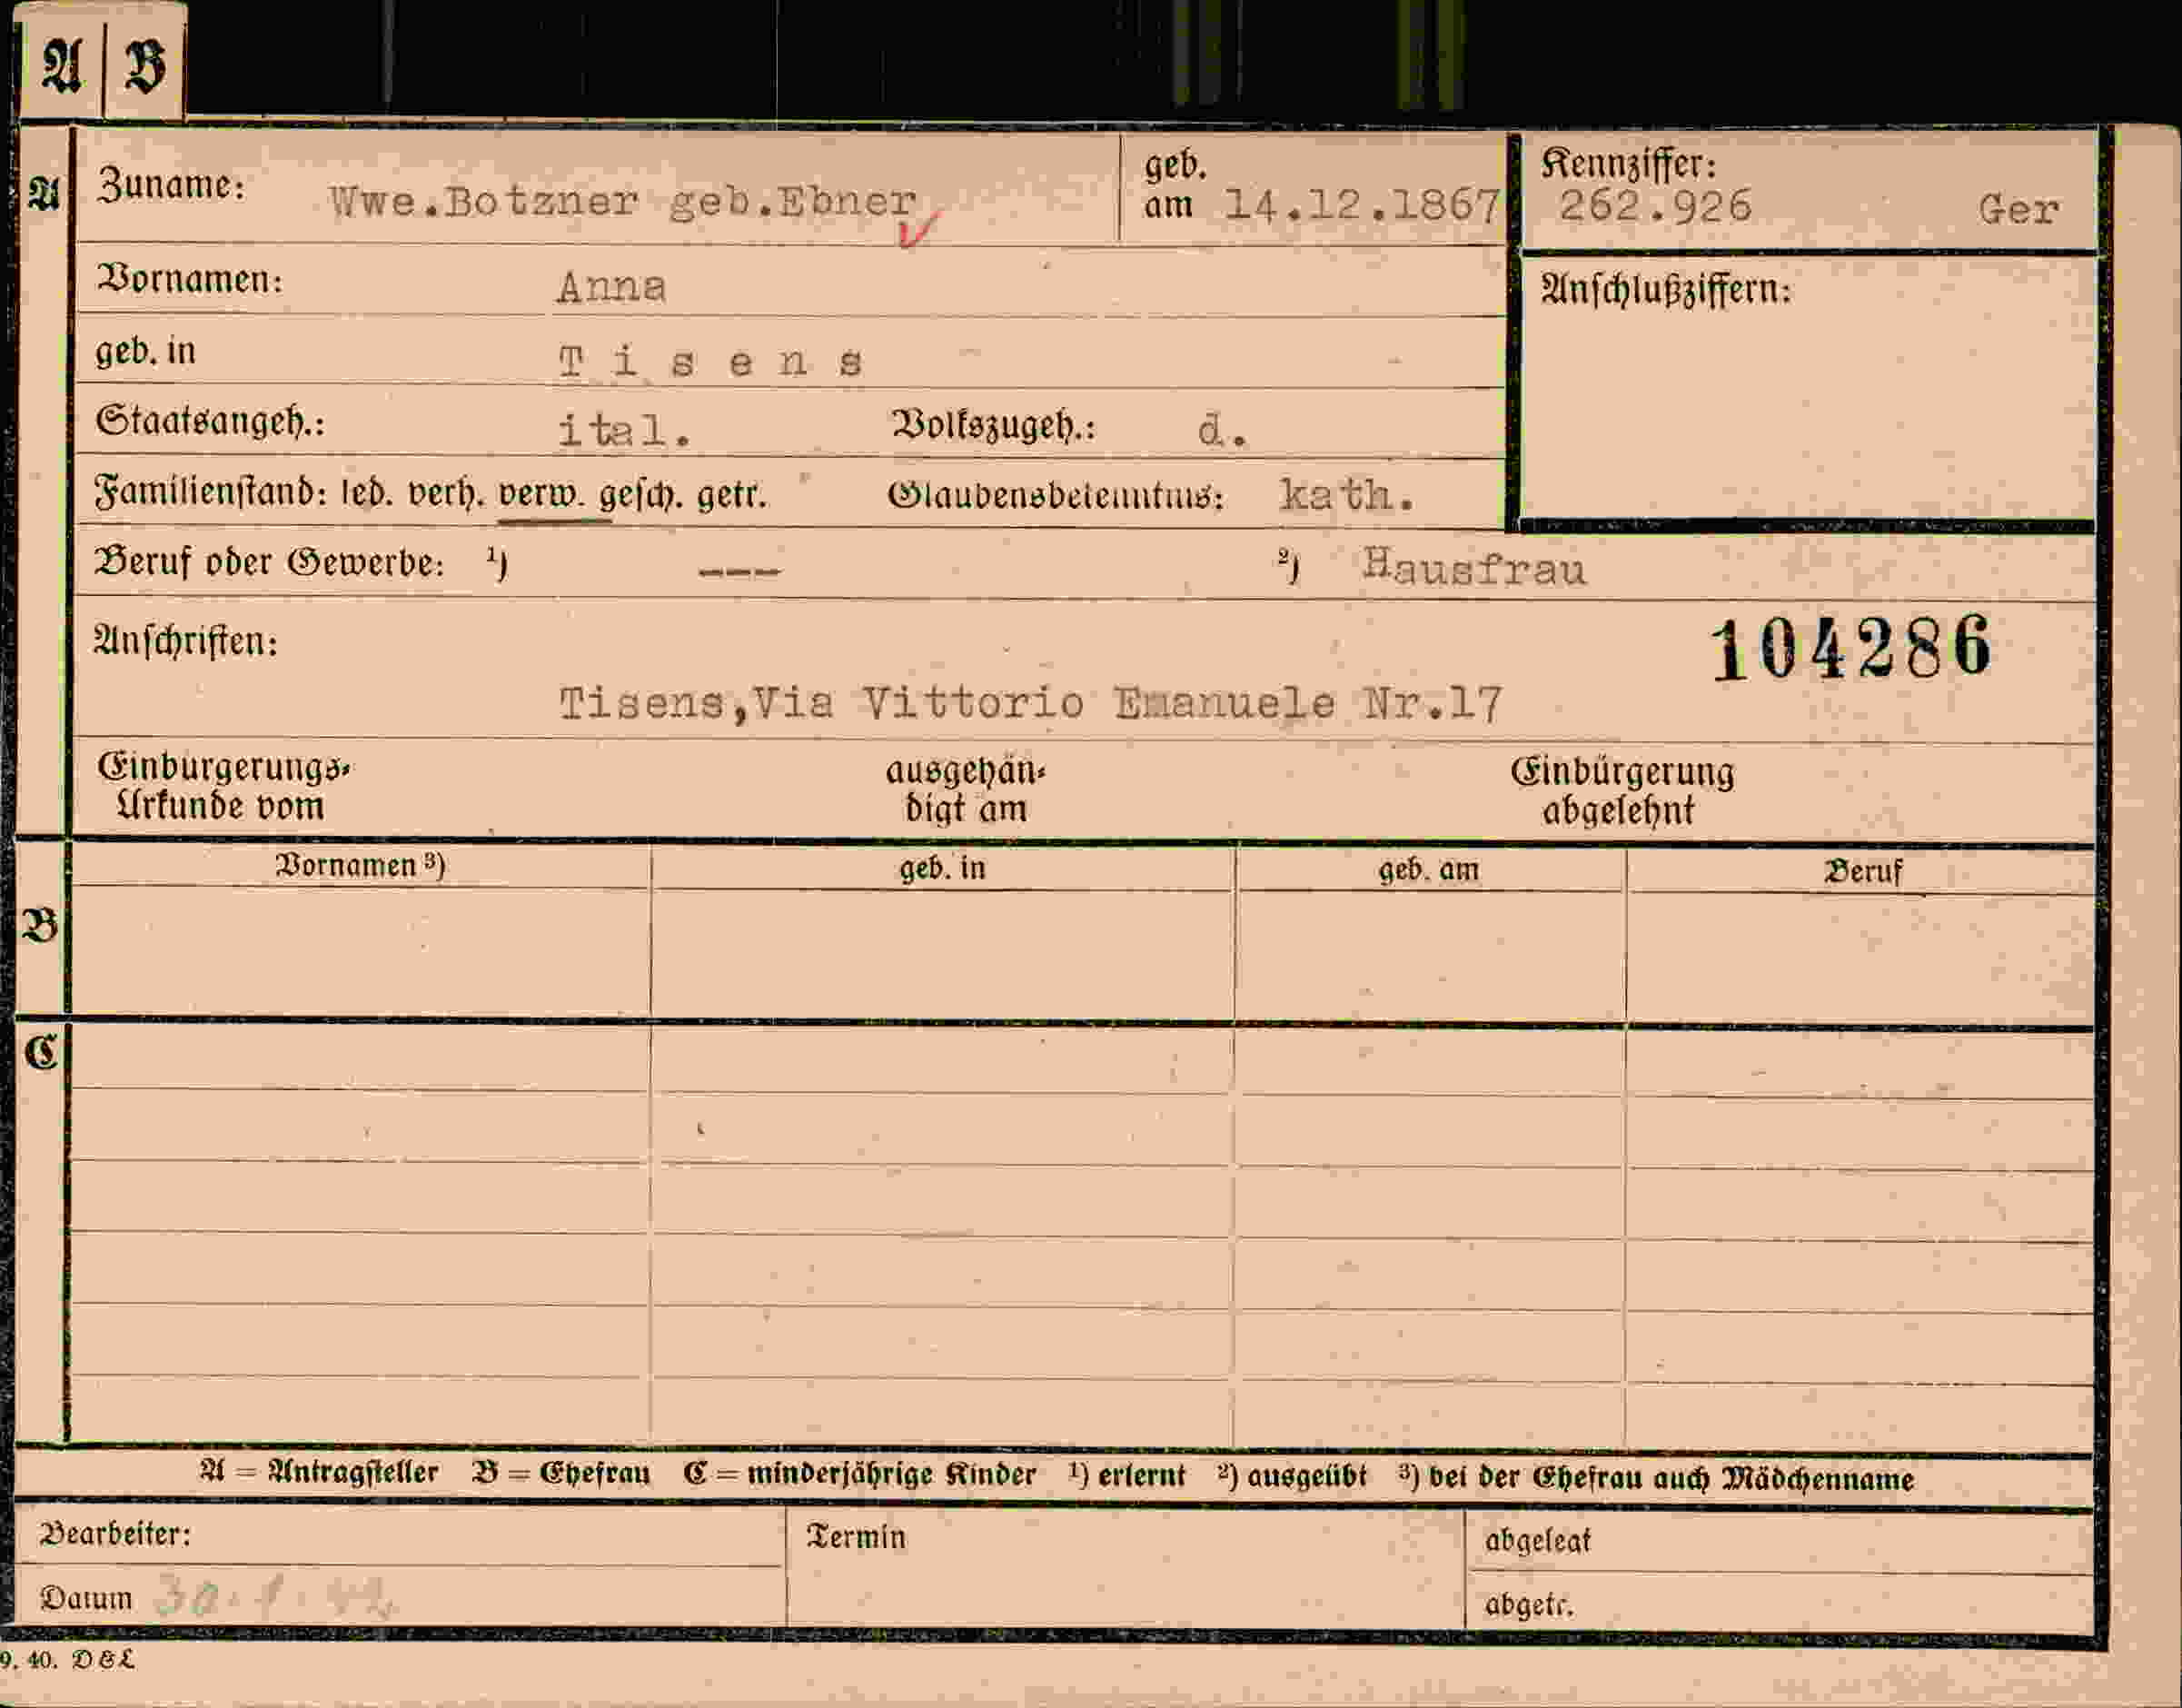 A B
A Zuname: Wwe.Botzner geb.Ebner geb. am 14.12.1867 Kennziffer: 262.926 Ger
Vornamen: Anna Anschlußziffern:
geb. in Tisens
Staatsangeh.: ital. Volkszugeh.: d.
Familienstand: led. verh. verw. gesch. getr. Glaubensbekenntnis: kath.
Beruf oder Gewerbe: ¹) --- ²) Hausfrau
Anschriften: 104286
Tisens,Via Vittorio Emanuele Nr.17
Einbürgerungs- ausgehän- Einbürgerung
Urkunde vom digt am abgelehnt
Vornamen ³) geb. in geb. am Beruf
B
C
A = Antragsteller B = Ehefrau C = minderjährige Kinder ¹) erlernt ²) ausgeübt ³) bei der Ehefrau auch Mädchenname
Bearbeiter: Termin abgelegt
Datum 30.1.42 abgetr.
9. 40. D&L